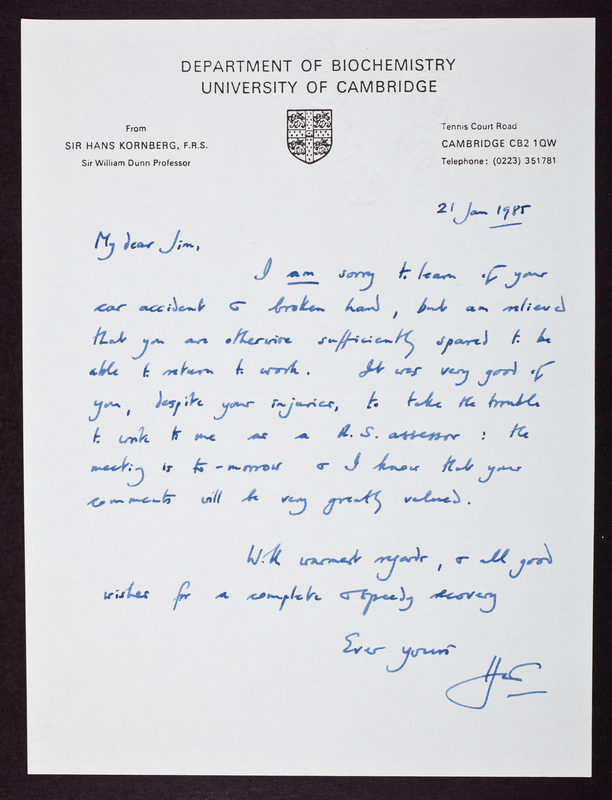 DEPARTMENT OF BIOCHEMISTRY
UNIVERSITY OF CAMBRIDGE
From
SIR HANS KORNBERG, F.R.S.
Sir William Dunn Professor
Tennis Court Road
CAMBRIDGE CB2 1QW
Telephone: (0223) 351781
21 Jan 1985
My dear Jim,
I am sorry to learn of your
car accident & broken hand, but am relieved
that you are otherwise sufficiently spared to be
able to return to work. It was very good of
you, despite your injuries, to take the trouble
to write to me as a R.S. assessor: the
meeting is to-morrow & I know that your
comments will be very greatly valued.
With warmest regards, & all good
wishes for a complete & speedy recovery
Ever yours
Hans